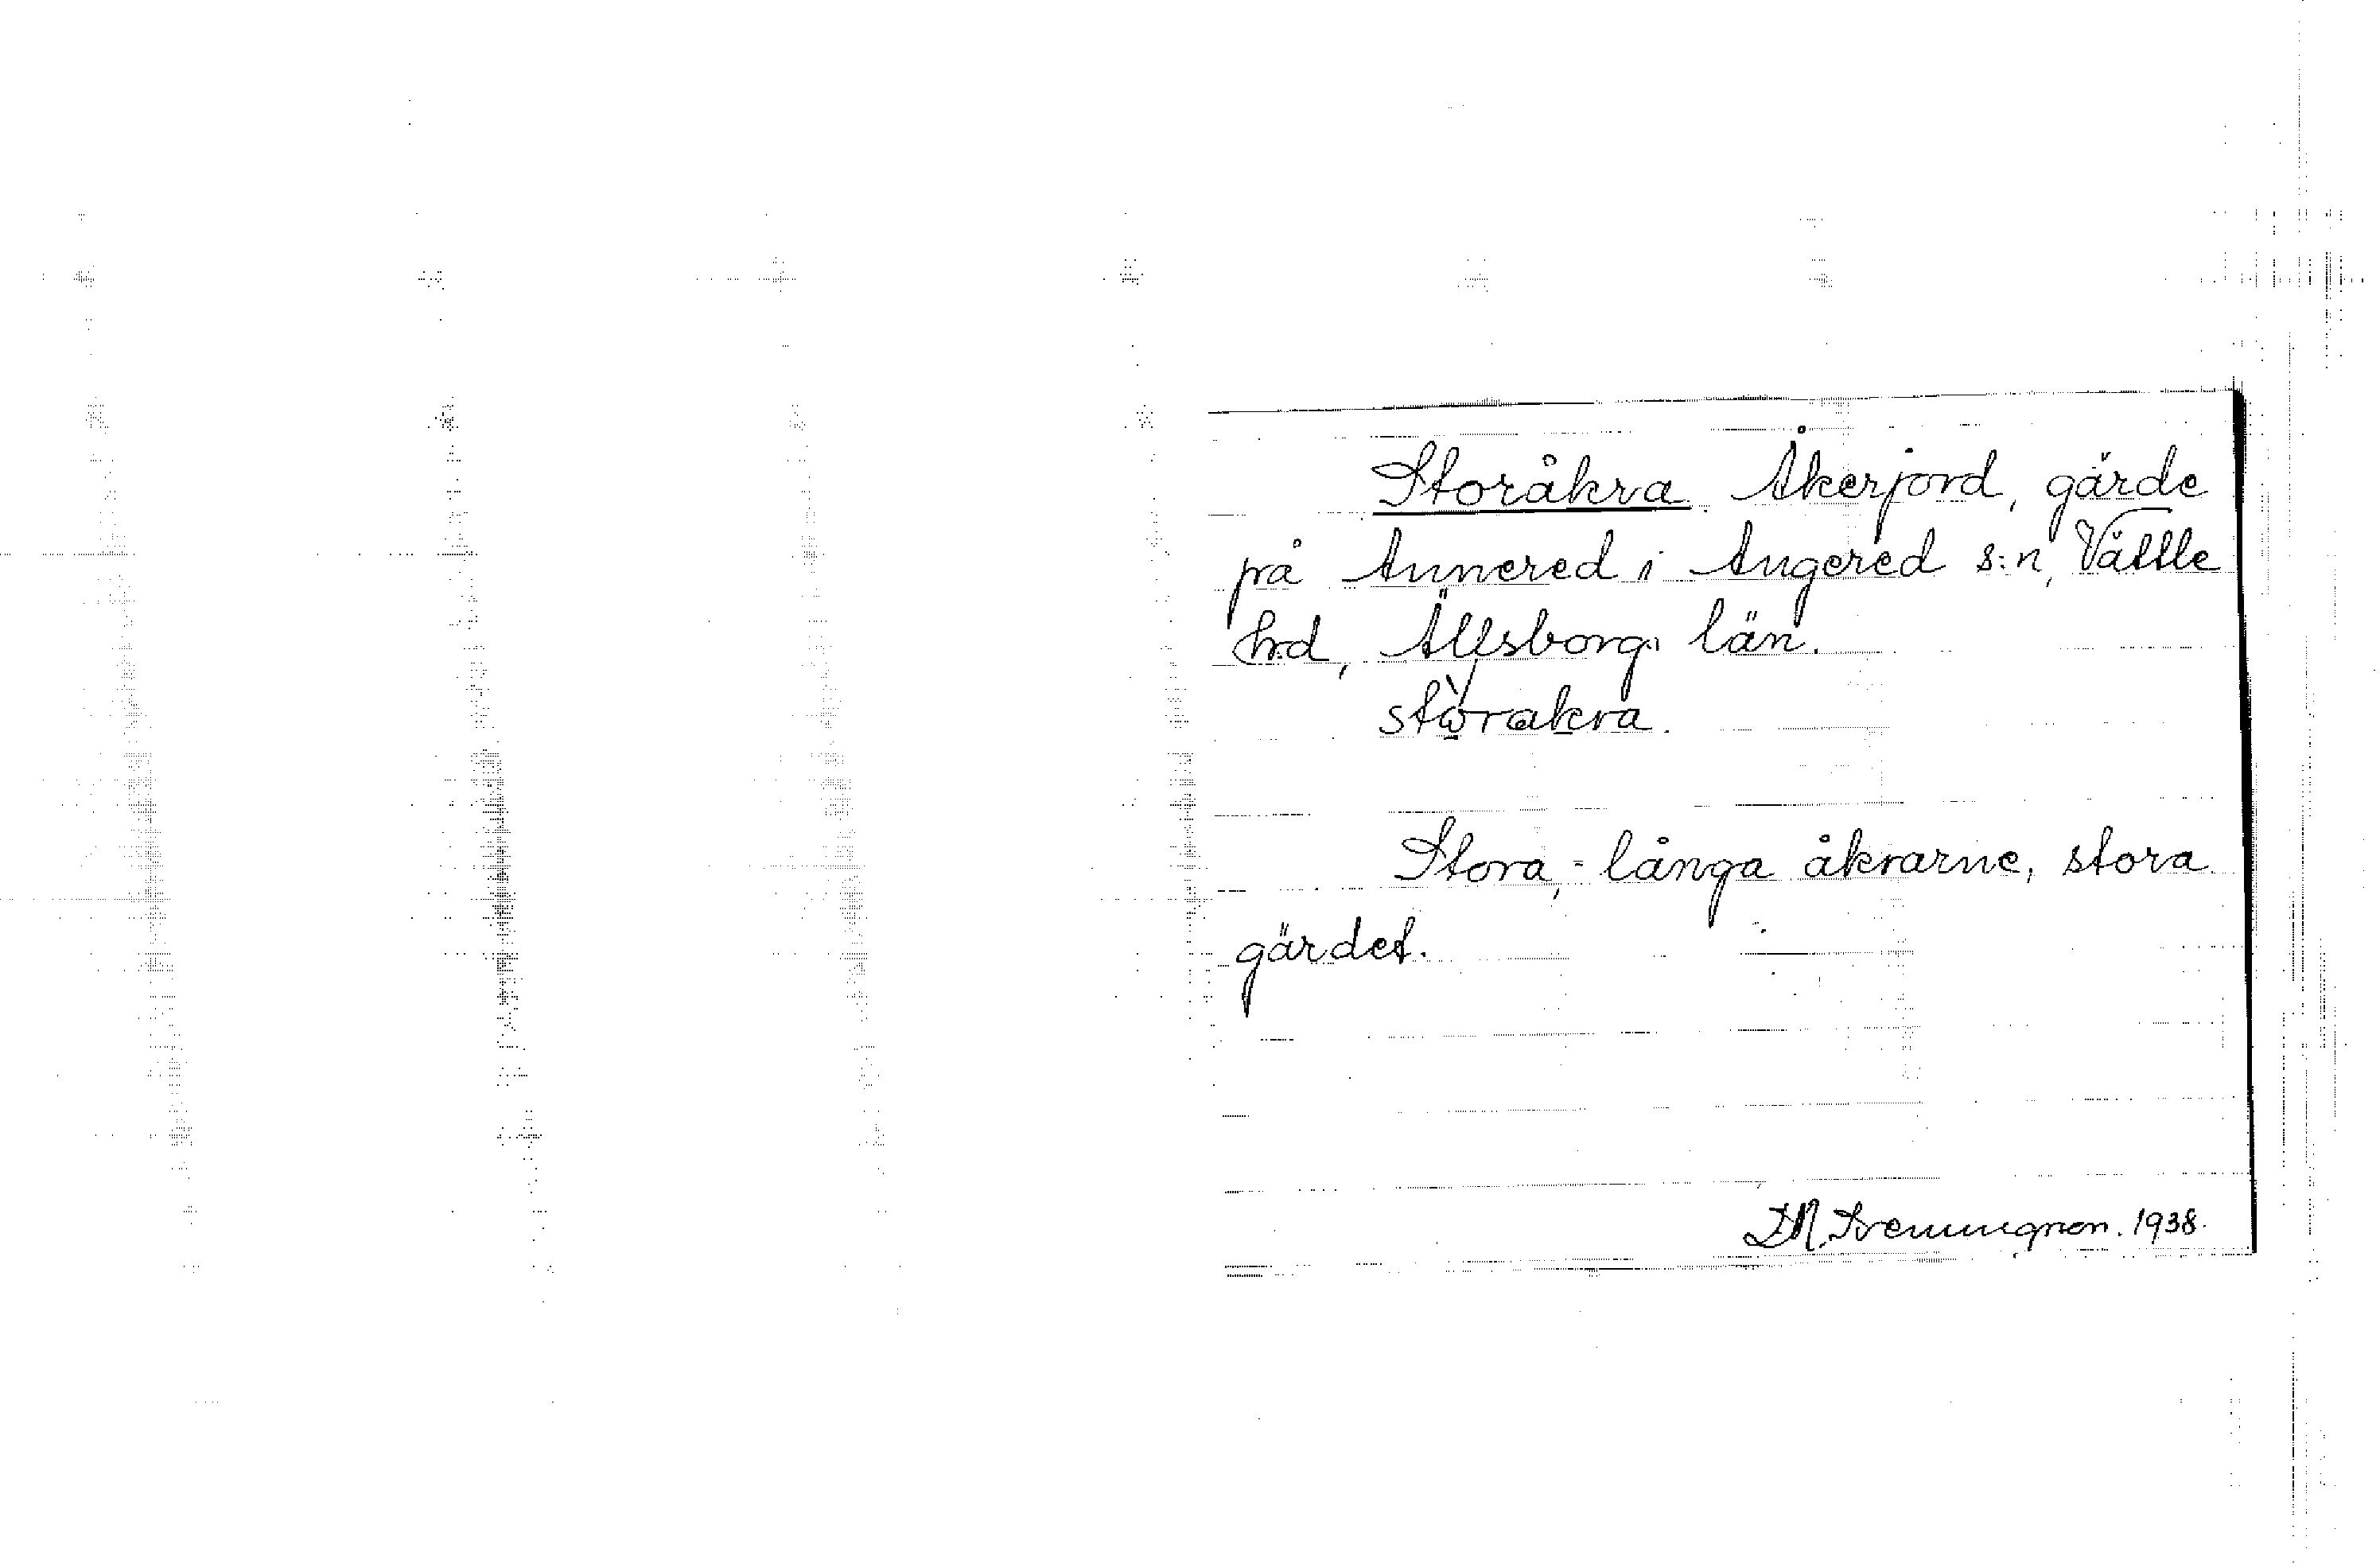 Storåkra. Åkerjord, gärde
på Annered i Angered s:n, Vättle
hrd, Älfsborgs län.
stòrakra.
Stora, - långa åkrarne, stora
gärdet.
1938.